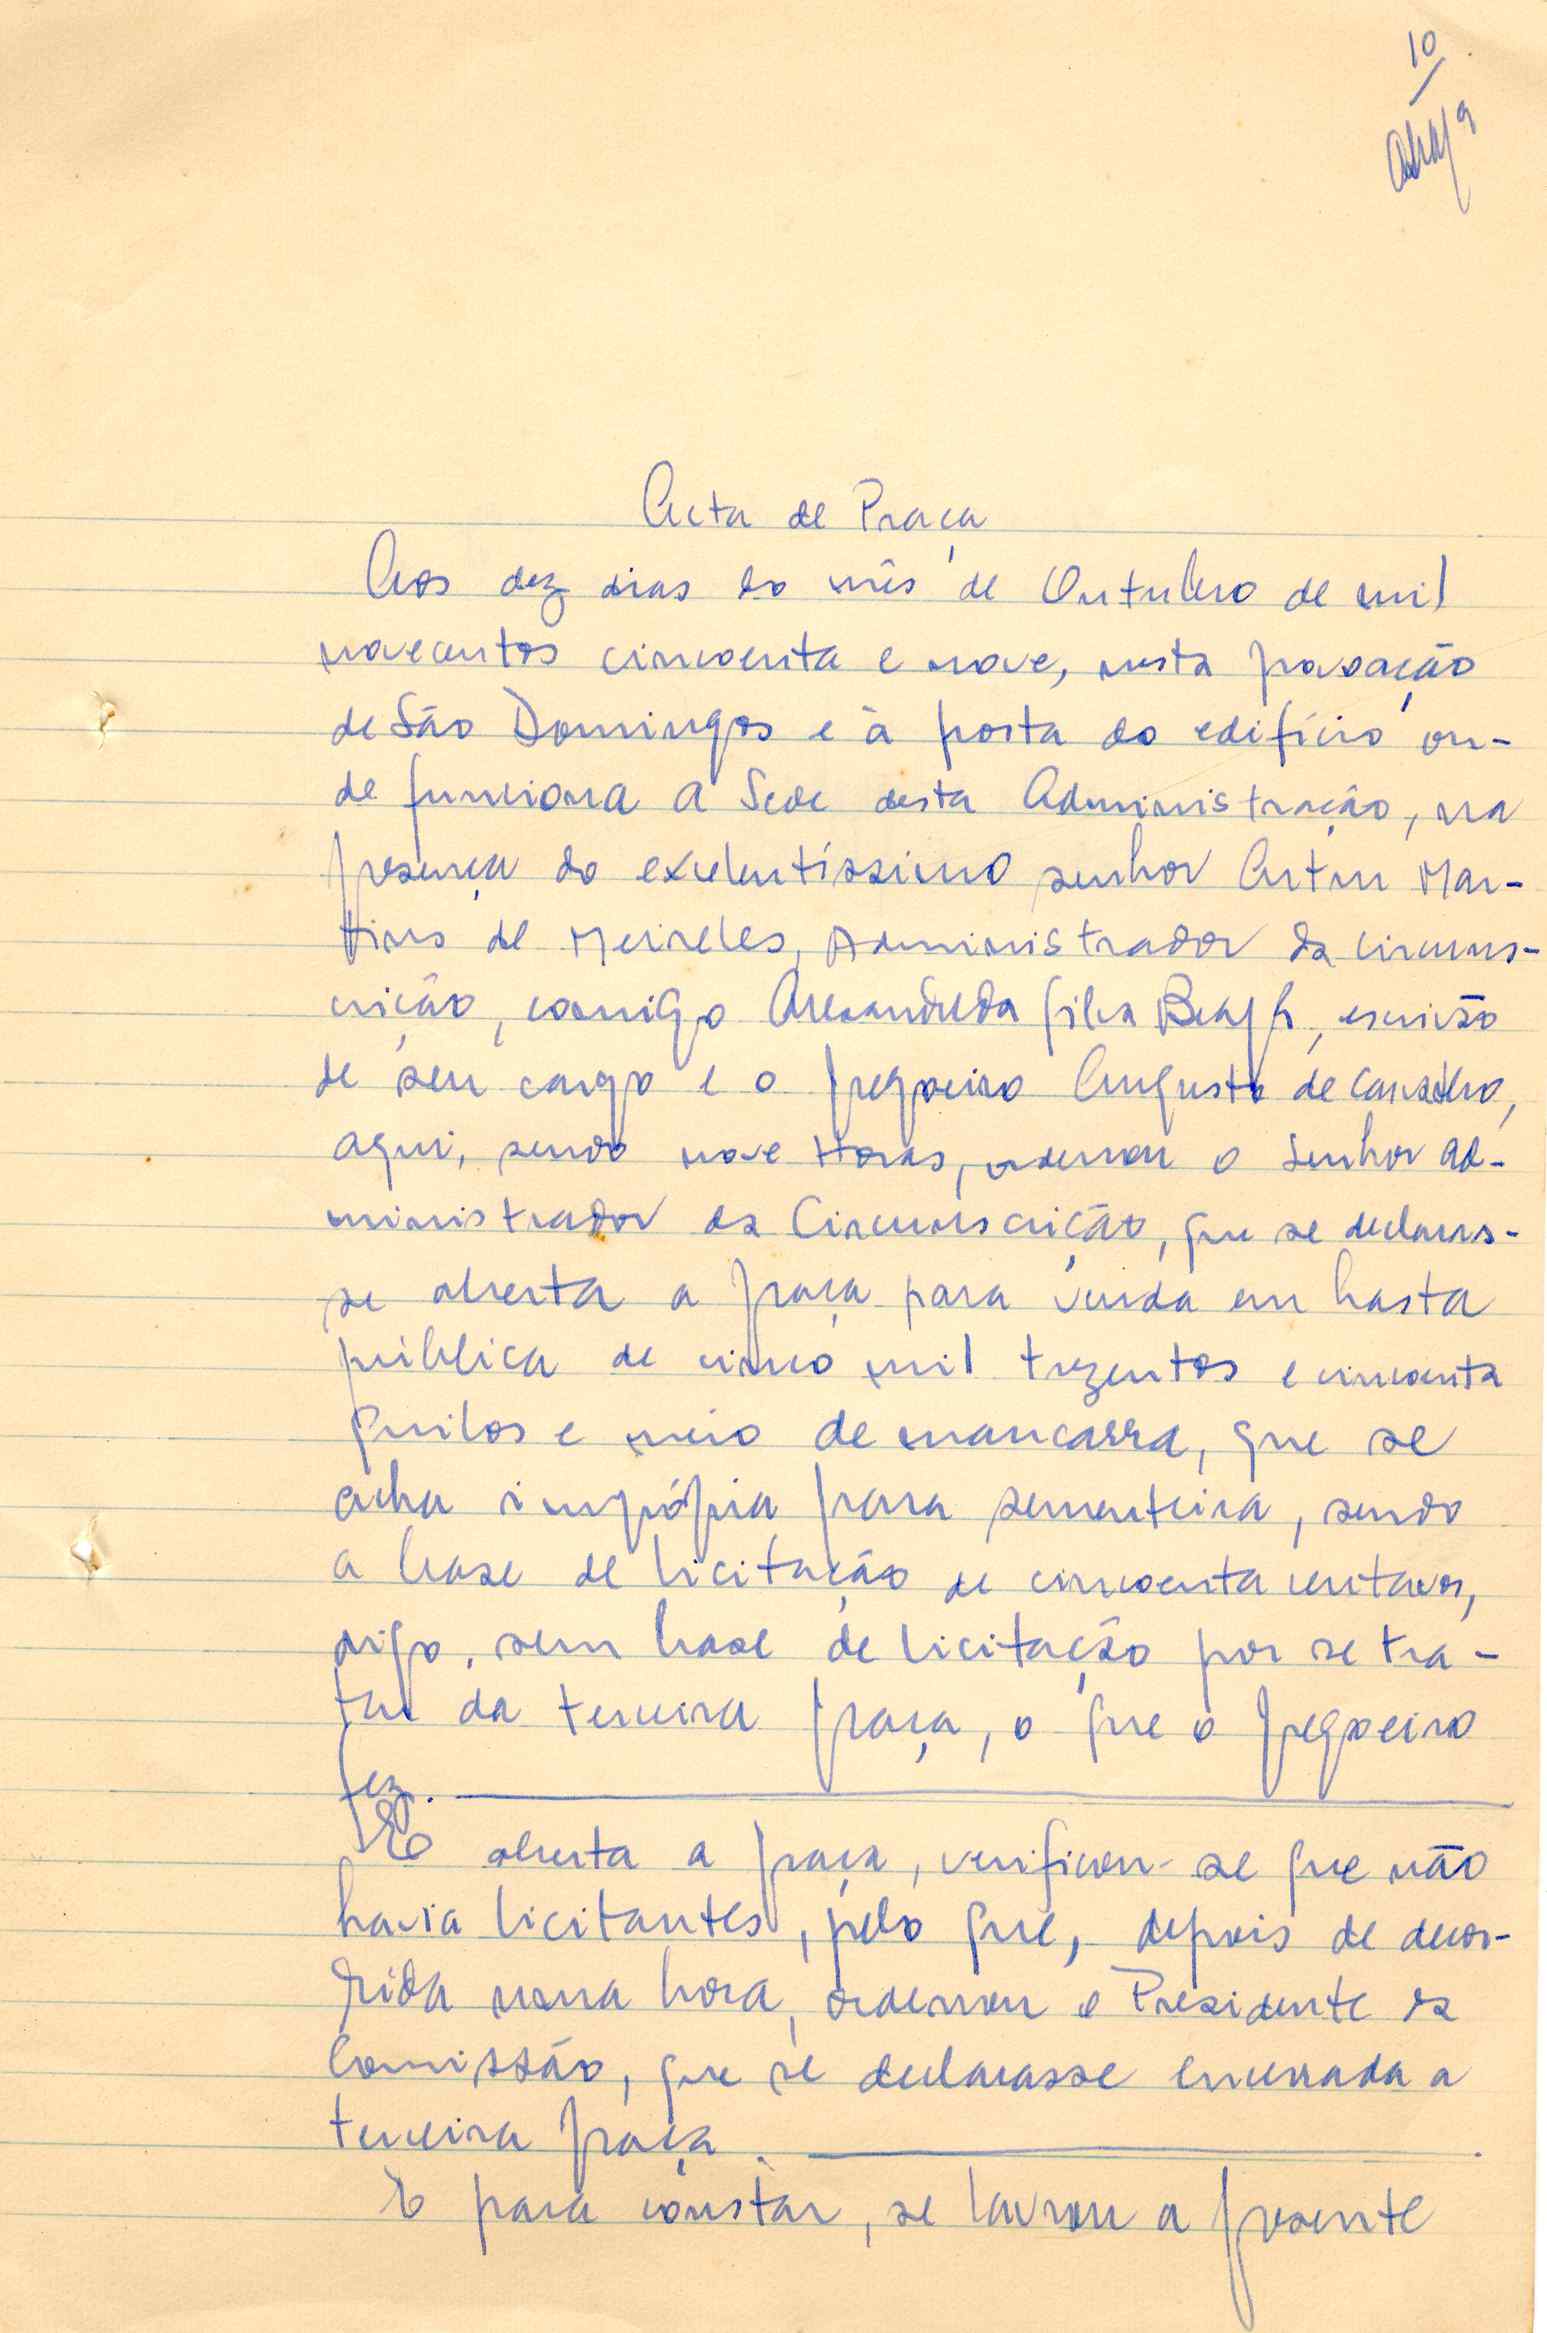 10
Acta de Praça
Aos dez dias do mês de Outubro de mil
novecentos cincoenta e nove, nesta povoação
de São Domingos e à porta do edifício on-
de funciona a Sede desta Administração, na
presença do exelentíssimo senhor Artur Mar-
tins de Meireles, Administrador da circuns-
crição, comigo Alexandre da Silva, escrivão
de seu cargo e o pregoeiro Augusto de Carvalho,
aqui, sendo nove Horas, ordenou o Senhor Ad-
ministrador da Circunscrição, que se declaras-
se aberta a praça para venda em hasta
pública de cinco mil trezentos e cincoenta
quilos e meio de mancarra, que se
acha imprópria para sementeira, sendo
a base de licitação de cincoenta centavos,
digo, sem base de licitação por se tra-
tar da terceira praça, o que o pregoeiro
fez.
E aberta a praça, verificou-se que não
havia licitantes, pelo que, depois de decor-
rida uma hora, ordenou o Presidente da
Comissão, que se declarasse encerrada a
terceira praça.
E para constar, se lavrou a presente